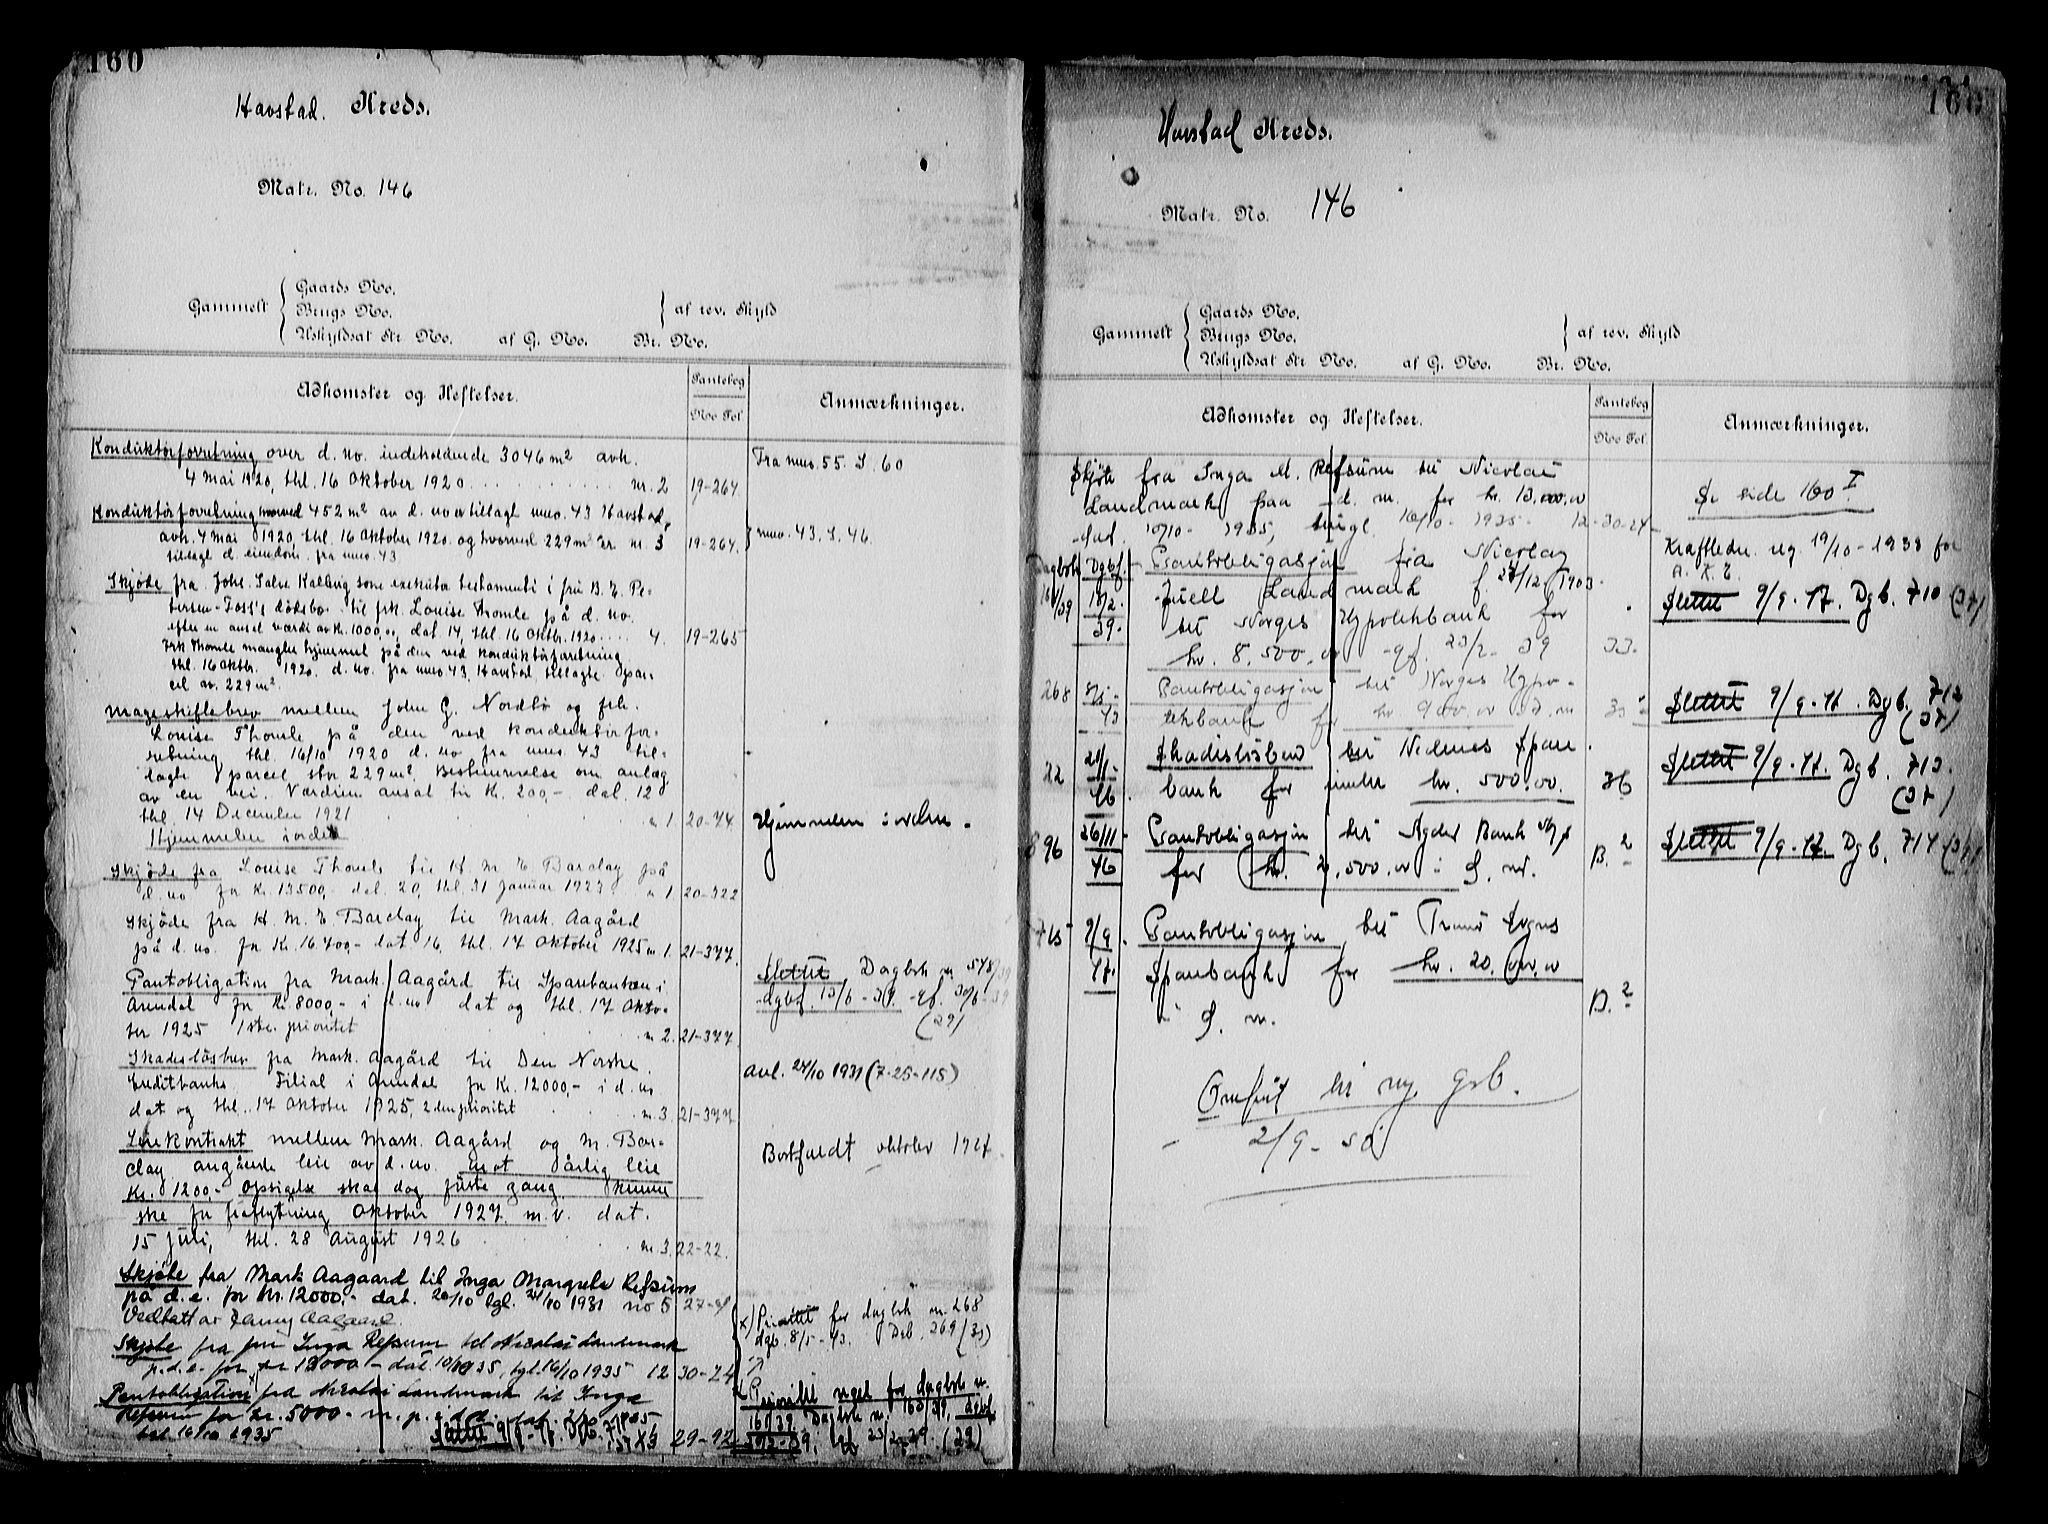 160
Havstad Kreds.
Matr. No. 146
Gaards No.
Gammelt Brugs No. af rev. Skyld
Uskyldsat Str. No. af G. No. Br. No.
Adkomster og Heftelser.
Pantebog
No. Fol.
Anmærkninger.
Konduktørforretning over d. no. indeholdende 3046 m² avh.
4 Mai 1920, thl. 16 Oktober 1920 nr. 2 19-264
Fra nuo. 55. S. 60
Konduktørforretning hvorved 452 m² av d. no er tillagt nuo. 43 Havstad,
avh. 4 mai 1920, thl. 16 Oktober 1920. og hvorved 229 m² er nr. 3 19-264.
tillagt d. eiendom. fra nuo. 43
nuo. 43. S. 46.
Skjøde fra Johs. Salve Kalling som executor testamenti i fru B. E. Pe-
tersen-Foss's dødsbo til frk. Louise Thomle på d. no.
efter en ansat værdi av Kr. 1000,00, dat 14, thl. 16 Oktbr. 1920 4. 19-265
Frk Thomle mangler hjemmel på den ved Konduktørforretning
thl. 16 Oktbr. 1920. d. no. fra nuo 43, Havstad, tillagte Par-
cel av. 229 m².
Mageskiftebrev mellem John G. Nordbö og frk.
Louise Thomle på den ved Konduktørfor-
retning thl. 16/10 1920 d. no fra nuo 43 til-
lagte parcel stor 229 m², Bestemmelse om anlæg
av en vei. Værdien ansat til Kr. 200,- dat. 12
thl. 14 December 1921 n 1. 20-74
Hjemmelen i orden
Hjemmelen i orden.
Skjøde fra Louise Thomle til H. M. E Barclay på
d. no for Kr. 13500,- dat. 20, thl. 31 Januar 1923 n 1. 20-322
Skjøde fra H. M. E Barclay til Mark. Aagård
på d. no. for Kr. 16.400,- dat 16, thl. 17 Oktober 1925 n 1. 21-377.
Pantobligation fra Mark. Aagård til Sparebanken i
Arendal for Kr. 8000,- i d. no dat og thl. 17 Okto-
ber 1925 1ste prioritet n 2. 21-377
Slettet Dagbok nr 548/39
dgbf. 13/6-39. -gf. 30/6-39
(29)
Skadesløsbrev fra Mark. Aagård til Den Norske
Creditbanks Filial i Arendal for Kr. 12000,- i d. no
dat og thl. 17 Oktober 1925, 2den prioritet n. 3. 21-377
Avl. 24/10 1931 (7-25-115)
Leiekontrakt mellem Mark. Aagård og M. Bar-
clay angående leie av d. no. mot årlig leie
Kr. 1200,- Opsigelse skal dog første gang kunne
ske for fraflytning Oktober 1927, m. v. dat.
15 Juli, thl. 28 August 1926 nr. 3. 22-22.
Bortfaldt oktober 1927.
Skjøte fra Mark Aagaard til Inga Margrete Refsum
på d. e. for Kr. 12000,- dat. 20/10 tgl. 24/10 1931 no 5 27-
Vedtatt av Fanny Aagaard.
Skjøte fra fru Inga Refsum til Nicolai Landmark
p. d. e. for kr 13000 - dat. 10/10 35, tgl. 16/10 1935 12 30-24
x) Prioritet for dagbok nr. 268
dgb. 8/5-43. Dgb. 269 (33)
Pantobligation fra Nicolai Landmark til Inga
Refsum for kr. 5000- m. p. i d. e.
tgl. 16/10 1935 29-92
Slettet 9/9-47. Dgb.
Prioritet veget for dagbok nr.
160/39. Dagbok nr. 163/39, dgbf.
gf. 23/2-39. (29)
Havstad Kreds.
Matr. No. 146
Gaards No.
Gammelt Brugs No. af rev. Skyld
Uskyldsat Str. No. af G. No. Br. No.
Adkomster og Heftelser.
Pantebog
No. Fol.
Anmærkninger.
Skjöte fra Inga M. Refsum til Nicolai
Landmark paa d. n. for kr. 13,000,00
dat. 10/10- 1935, tingl. 16/10- 1935- 12-30-24
Se side 160 I.
Kraftledn. ug 19/10-1938 for
A. K. E.
Dagbok Dgbf. Pantobligasjon fra Nicolay
Juell Landmark f. 27/12 1903
til Norges Hypotekbank for
kr. 8,500,00 -gf. 23/2-39 33.
Slettet 9/9.47. Dgb. 710 (37)
268 8/5- 43 Pantobligasjon til Norges Hypo-
tekbank for kr 900,00 i d. n
Slettet 9/9.47. Dgb. 712
(37)
22 46. Skadeslösbrev til Nedenes Spare
bank for inntil kr. 500,00. 36
Slettet 9/9.47. Dgb. 713.
(37)
896 26/11- 46 Pantobligasjon til Agder Bank A/S
for kr. 2.500,00 i d. nr. B. 2
Slettet 9/9.47 Dgb. 714 (37)
715 9/9. 47. Pantobligasjon til Tromö Sogns
Sparebank for kr. 20.000,00
i d. n. B. 2
Omfört til ny grb.
2/9-50